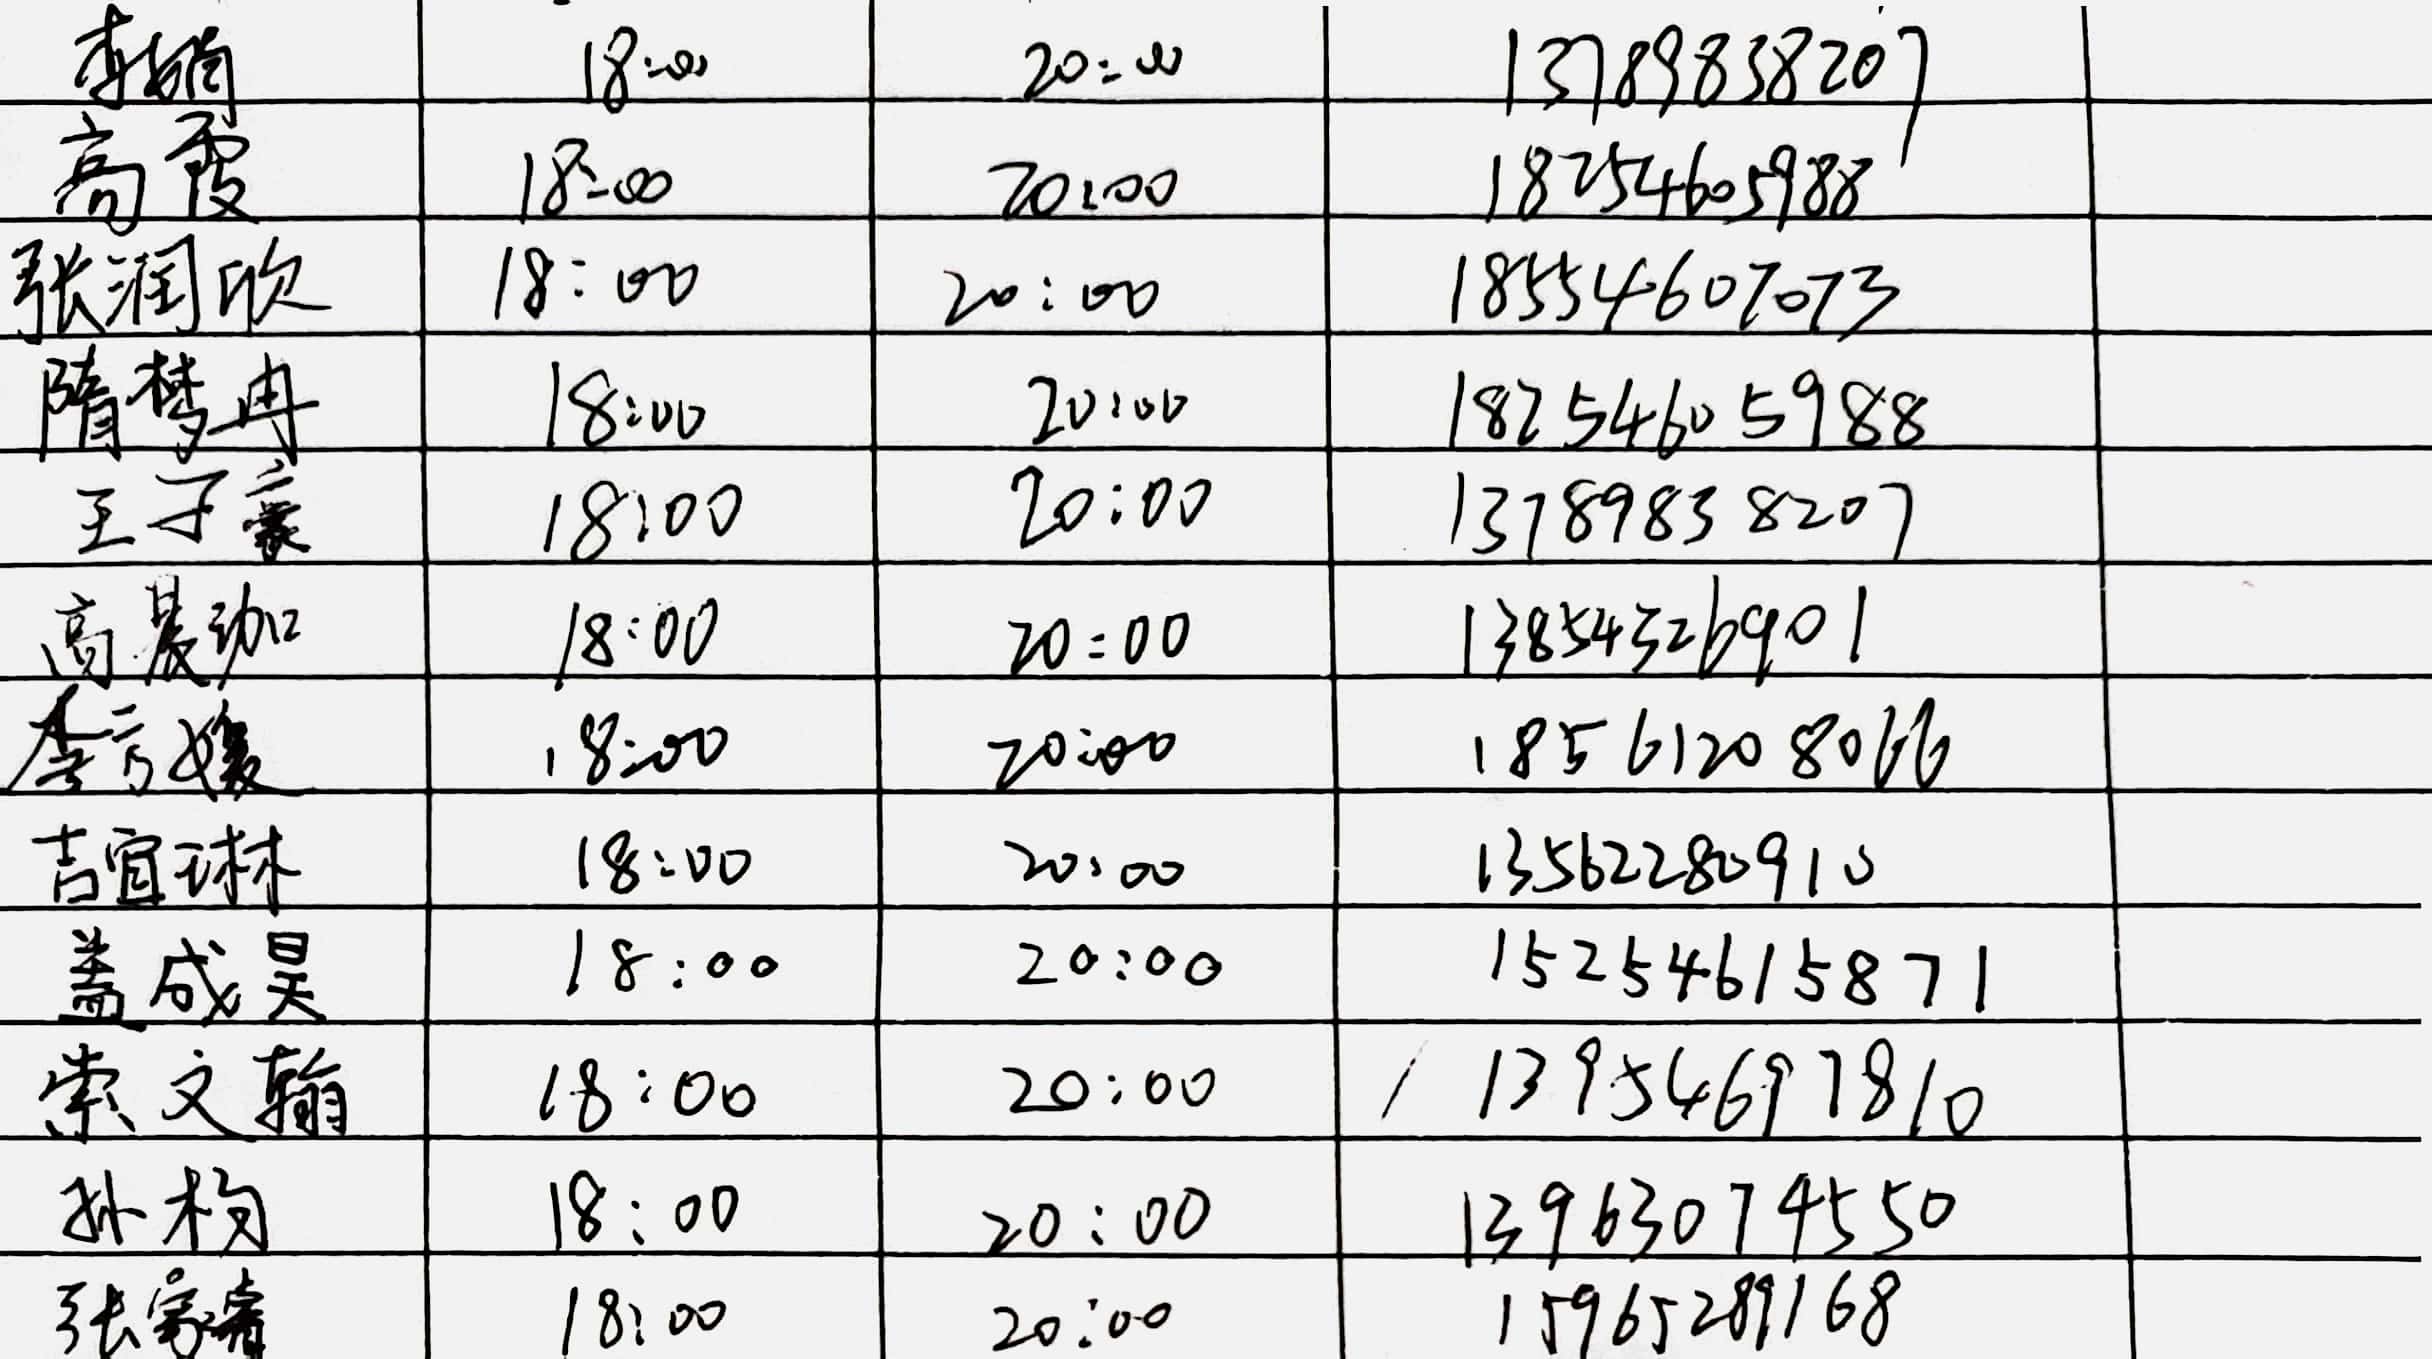 李娟 18:00 20:00 13789838207
高霞 18:00 20:00 18254605988
张润欣 18:00 20:00 18554607073
隋梦冉 18:00 20:00 18254605988
王子豪 18:00 20:00 13789838207
高晨珈 18:00 20:00 13854326901
李言媛 18:00 20:00 18561208066
吉宜琳 18:00 20:00 13562280910
盖成昊 18:00 20:00 15254615871
索文翰 18:00 20:00 13954697810
孙构 18:00 20:00 13963074550
张家睿 18:00 20:00 15965289168